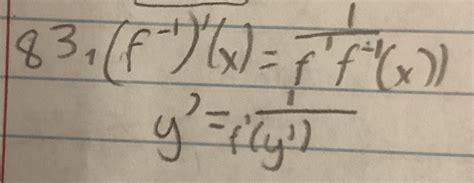 83, (f⁻¹)'(x) = 1/f'f⁻¹(x))
y' = 1/f'(y')